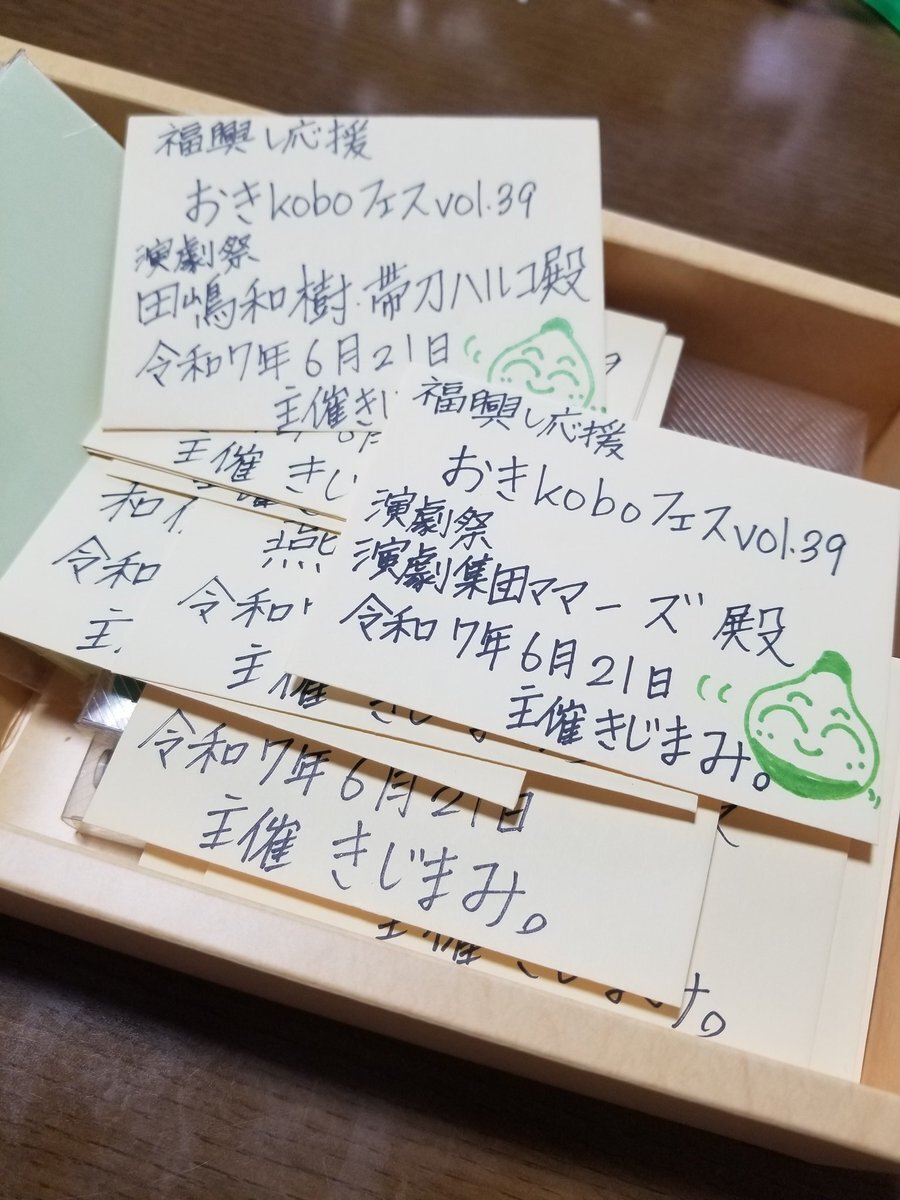 福興し応援
おきkoboフェスvol.39
演劇祭
田嶋和樹・帯刀ハルコ殿
令和7年6月21日
主催きじ
福興し応援
おきkoboフェスvol.39
演劇祭
演劇集団ママーズ殿
令和7年6月21日
主催きじまみ。
主催 きじ
令和
主
燕
令和
主催 きじ
令和7年6月21日
主催 きじまみ。